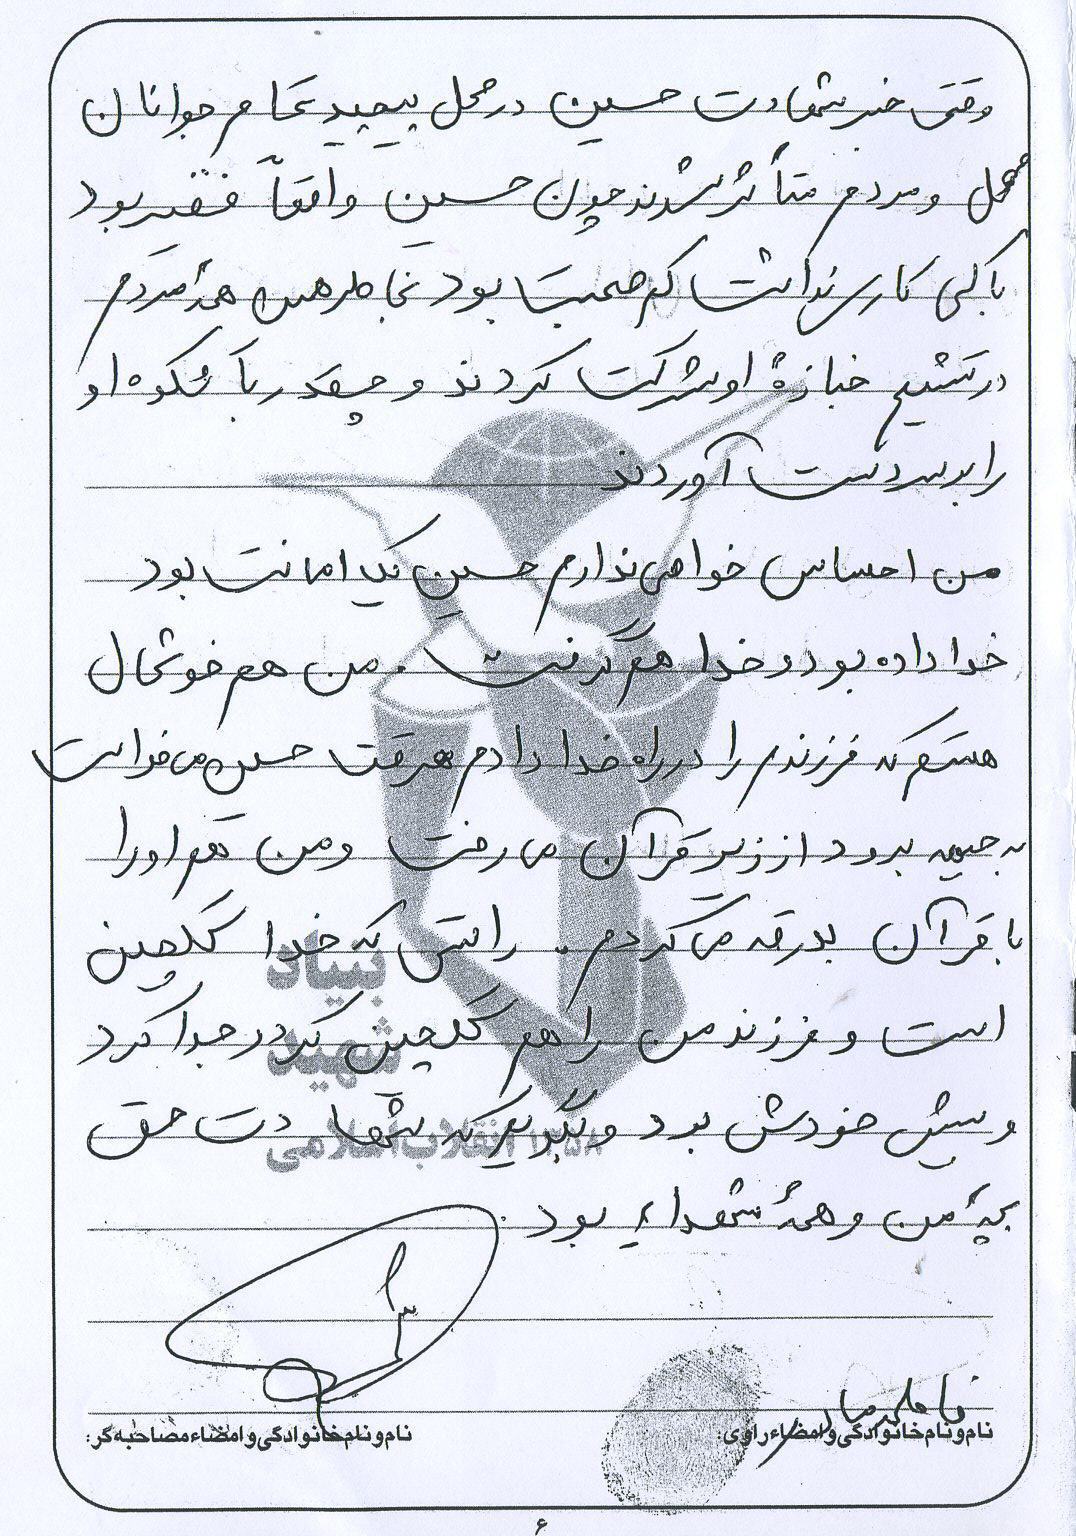 وقتی خبر شهادت حسین در محل پیچید تمام جوانان
محل و مردم متأثر شدند چون حسین واقعاً فقیر بود
با کسی کاری نداشت کم صحبت بود بخاطر همین همۀ مردم
در تشییع جنازۀ او شرکت کردند و چقدر با شکوه او
را بدست آوردند
من احساس خواهی ندارم حسین یک امانت بود
خدا داده بود و خدا هم گرفت . من هم خوشحال
هستم که فرزندم را در راه خدا دادم هروقت حسین می خواست
به جبهه برود از زیر قرآن می رفت و من هم او را
با قرآن بدرقه می کردم . راستی که خدا گلچین
است و فرزند من را هم گلچین کرد و جدا کرد
و پیش خودش برد و بگویم که شهادت حق
بچۀ من و همۀ شهدا بود .
بنیاد
شهید
انقلاب اسلامی ۱۳۵۸
نام و نام خانوادگی و امضاء راوی:
نام و نام خانوادگی و امضاء مصاحبه گر:
۶